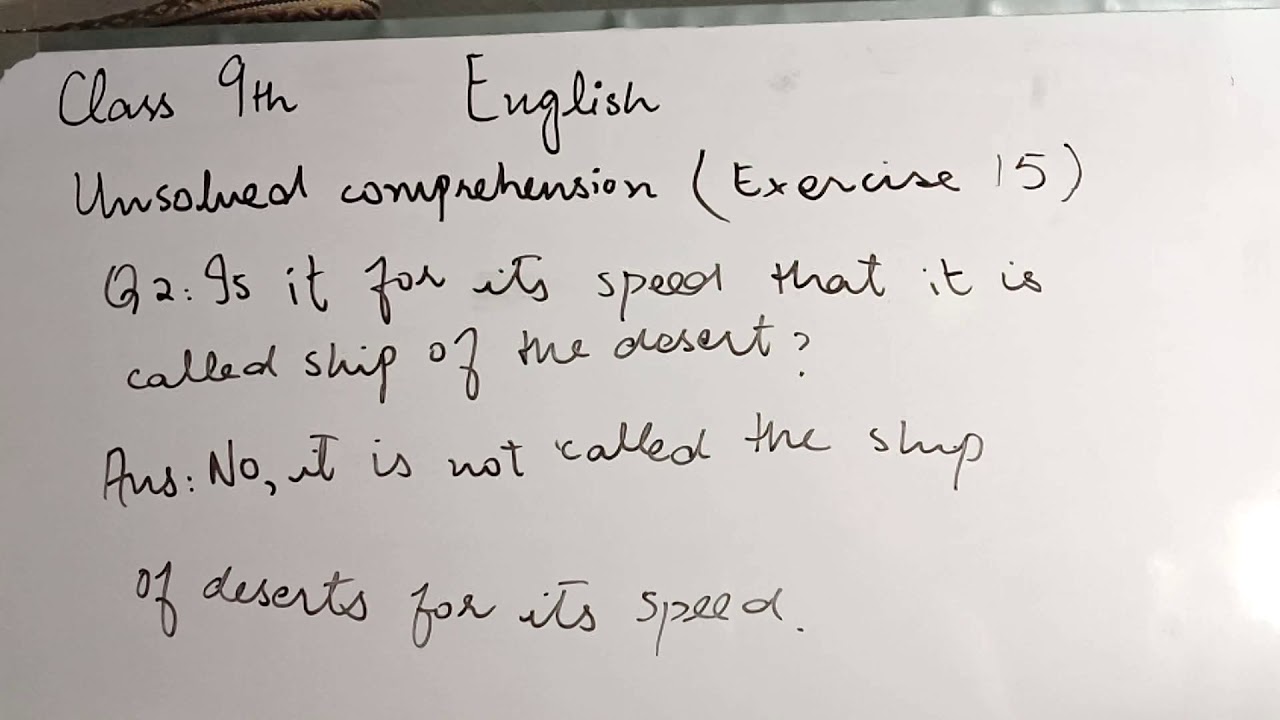 Class 9th English
Unsolved comprehension (Exercise 15)
Q2: Is it for its speed that it is
called ship of the desert?
Ans: No, it is not called the ship
of deserts for its speed.